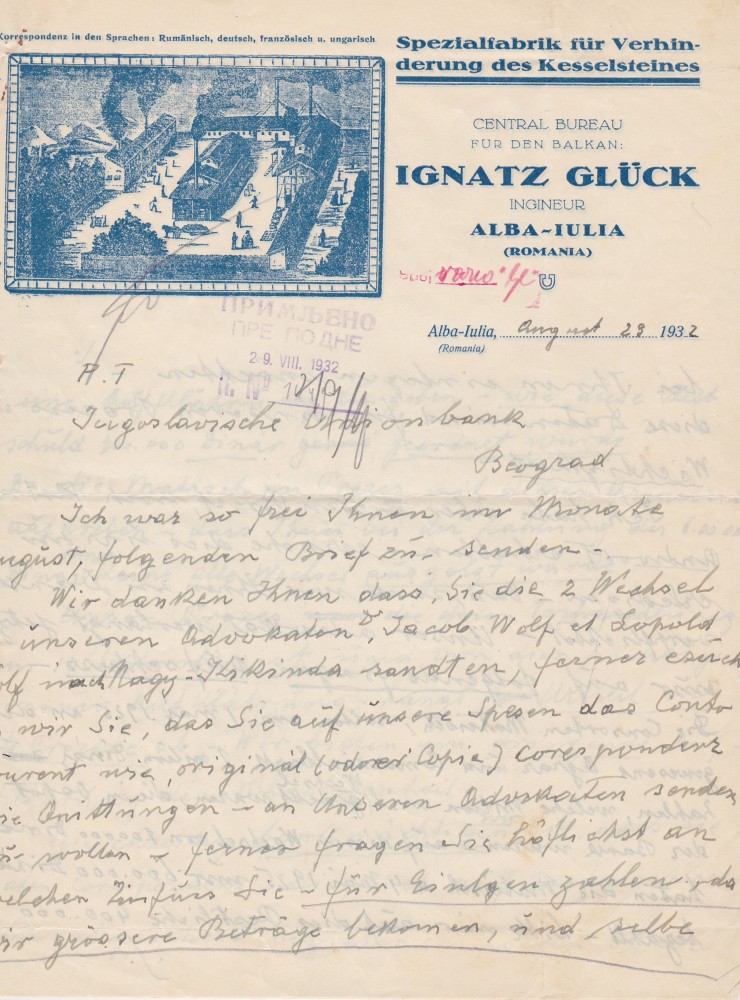 Korrespondenz in den Sprachen: Rumänisch, deutsch, französisch u. ungarisch
Spezialfabrik für Verhin-
derung des Kesselsteines
CENTRAL BUREAU
FÜR DEN BALKAN:
IGNATZ GLÜCK
INGINEUR
ALBA-IULIA
(ROMANIA)
Alba-Iulia, August 23 1932
(Romania)
ПРИМЉЕНО
ПРЕ ПОДНЕ
29. VIII. 1932
P. T
Jugoslavische Unionbank
Beograd
Ich war so frei Ihnen im Monate
August, folgenden Brief zu senden -
Wir danken Ihnen dass, Sie die 2 Wechsel
unseren Advokaten Dr, Jacob Wolf et Leopold
olf nach Nagy-Kikinda sandten, ferner
wir Sie, das Sie auf unsere Spesen das Conto
ourent wie, original (oder Copie) corespondenz
ie Quittungen - an Unseren Advokaten senden
wollen - ferner fragen Sie höflichst an
elchen Sie - für Einlgen zahlen, da
ir grössere Beträge bekomen, und selbe